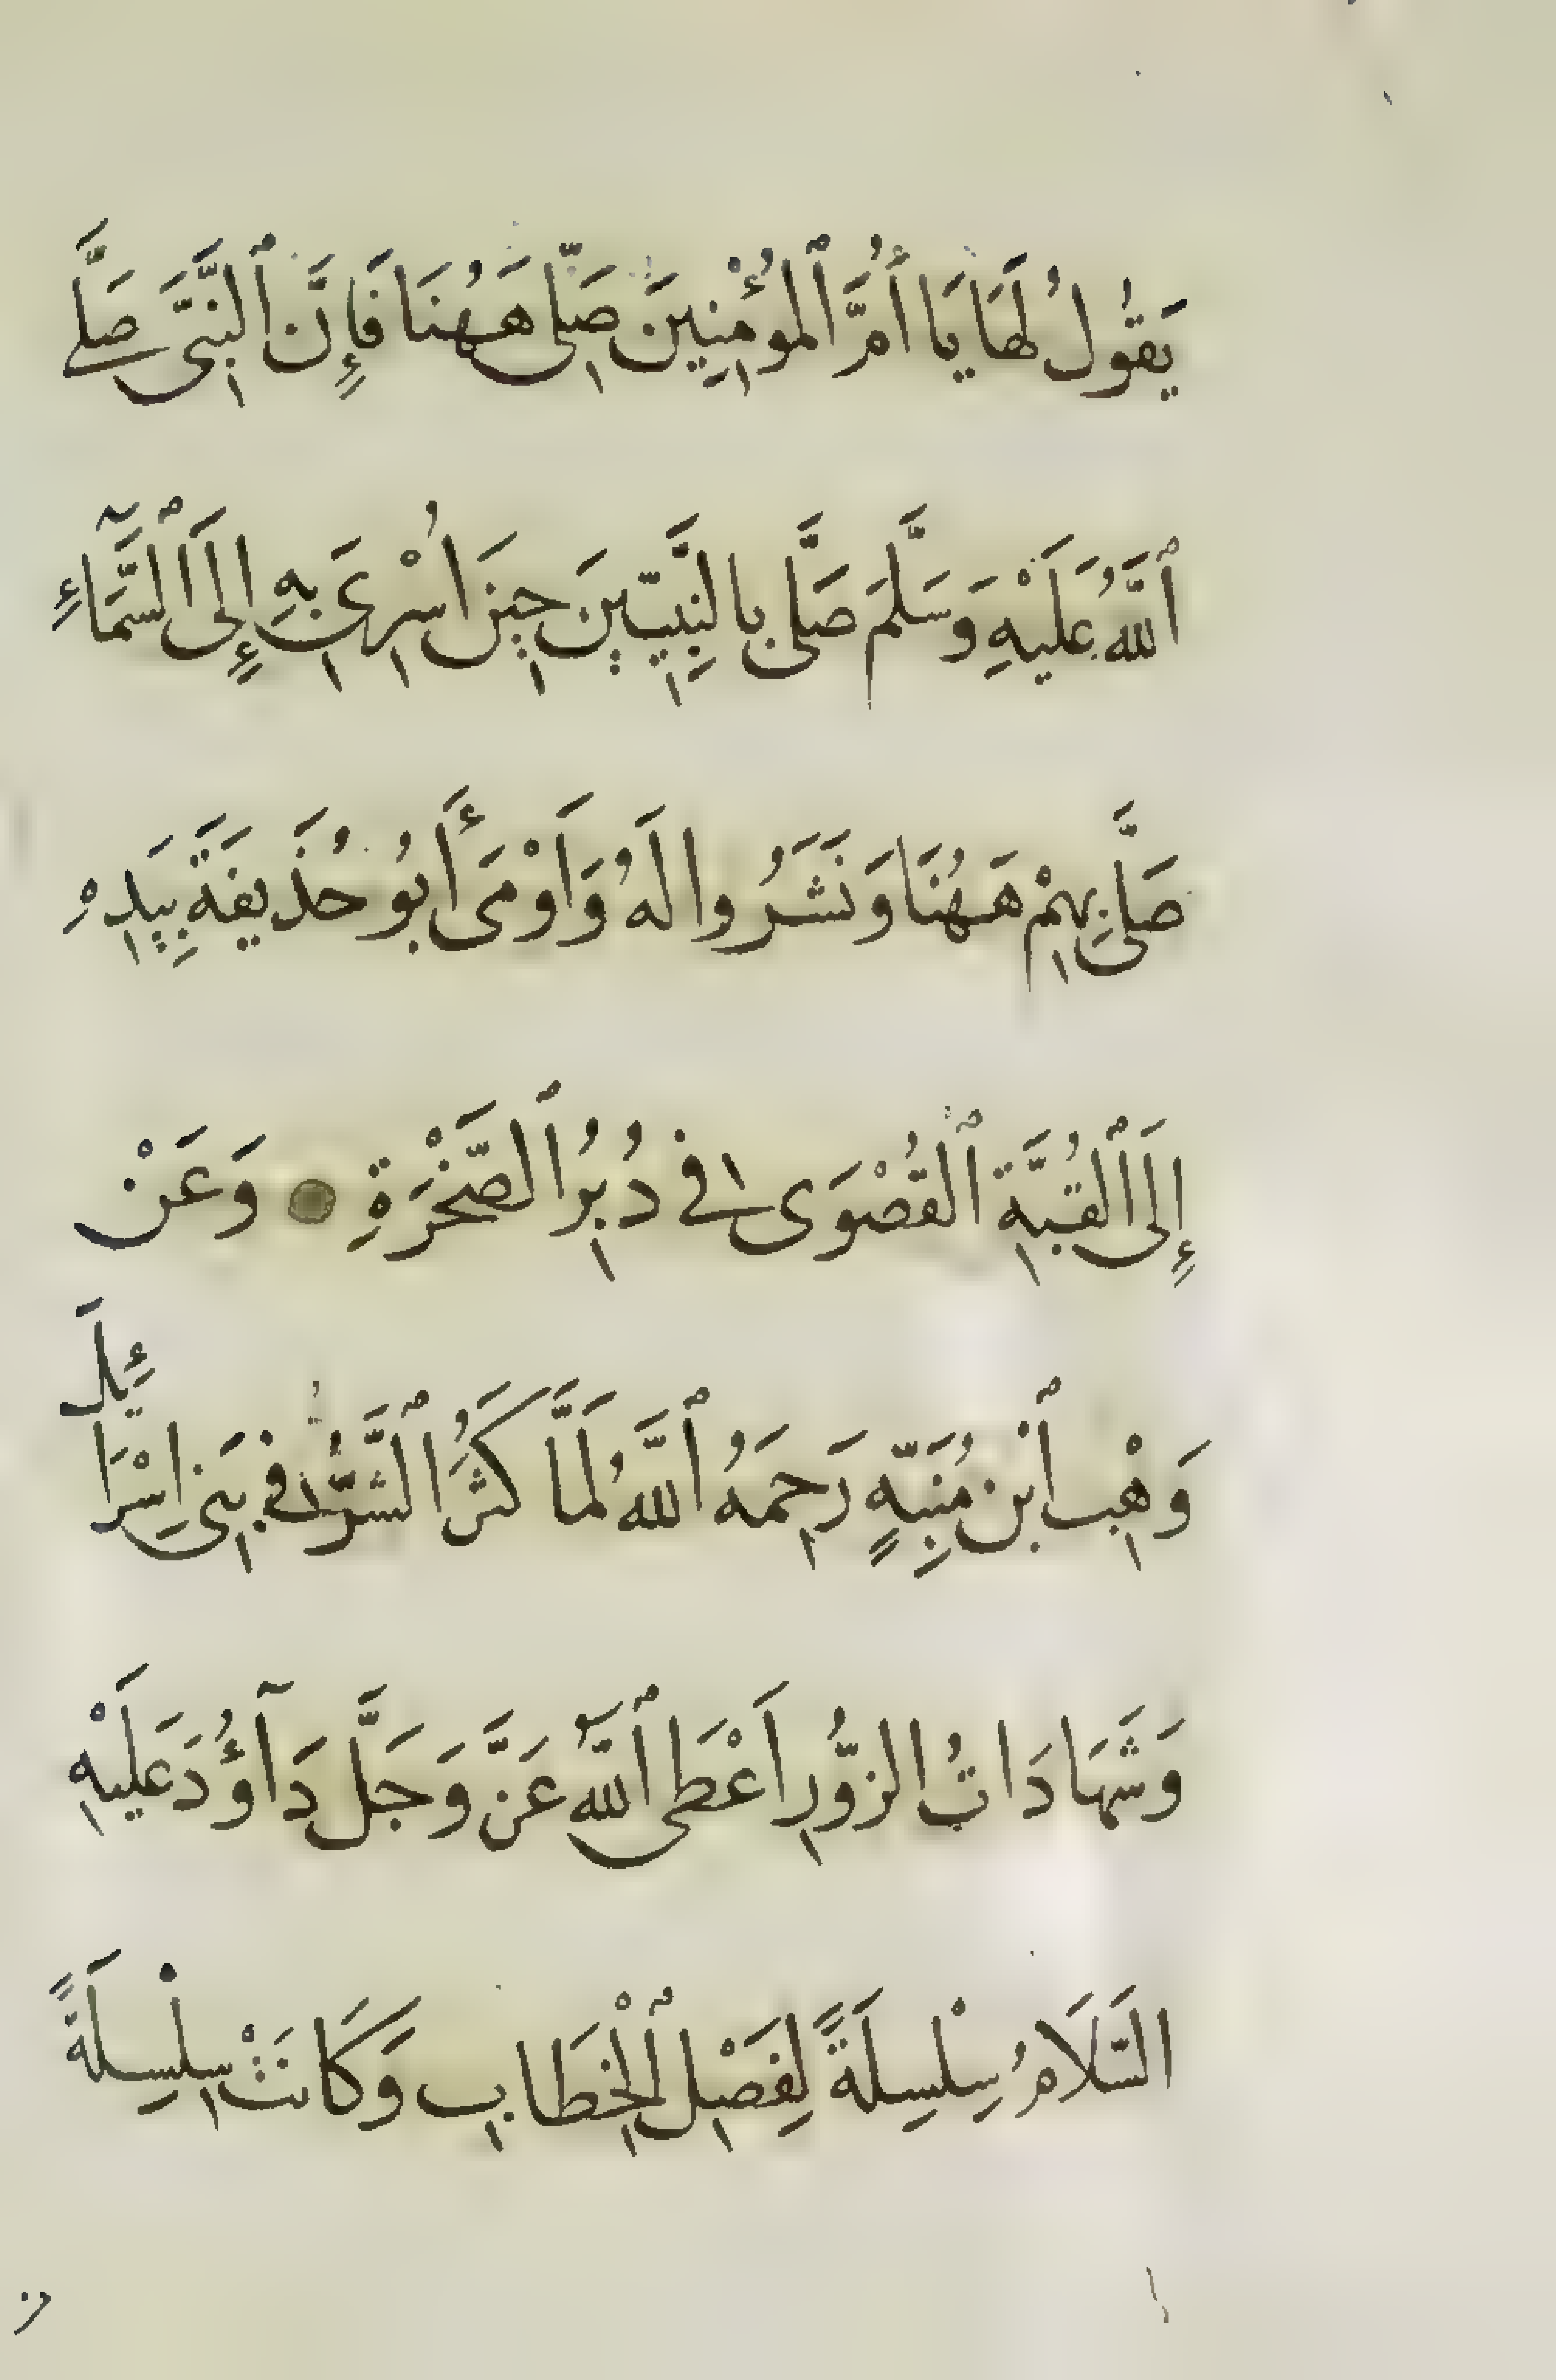 يَقُولُ لَهَا يَا أُمَّ ٱلْمُؤْمِنِينَ صَلِّى هَهُنَا فَإِنَّ ٱلنَّبِيَّ صَلَّى
ٱللَّهُ عَلَيْهِ وَسَلَّمَ صَلَّى بِالنَّبِيِّينَ حِينَ اُسْرِىَ بِهِ إِلَى ٱلسَّمَآءِ
صَلَّى بِهِمْ هَهُنَا وَنَشَرُوا لَهُ وَاَوْمَى أَبُو حُذَيفَةَ بِيَدِهِ
إِلَى ٱلْقُبَّةِ ٱلْقُصْوَى فى دُبُرِ ٱلصَّخْرَةِ وَعَنْ
وَهْبِ ٱبْنِ مُنَبِّهٍ رَحِمَهُ ٱللَّهُ لَمَّا كَثُرَ ٱلشَّرُّ فى بَنِى اِسْرَائِلَ
وَشَهَادَاتُ الزُّورِ اَعْطَى ٱللَّهُ عَزَّ وَجَلَّ دَآؤُدَ عَلَيْهِ
السَّلَامُ سِلْسِلَةً لِفَصْلِ ٱلْخِطَابِ وَكَانَتْ سِلْسِلَةً